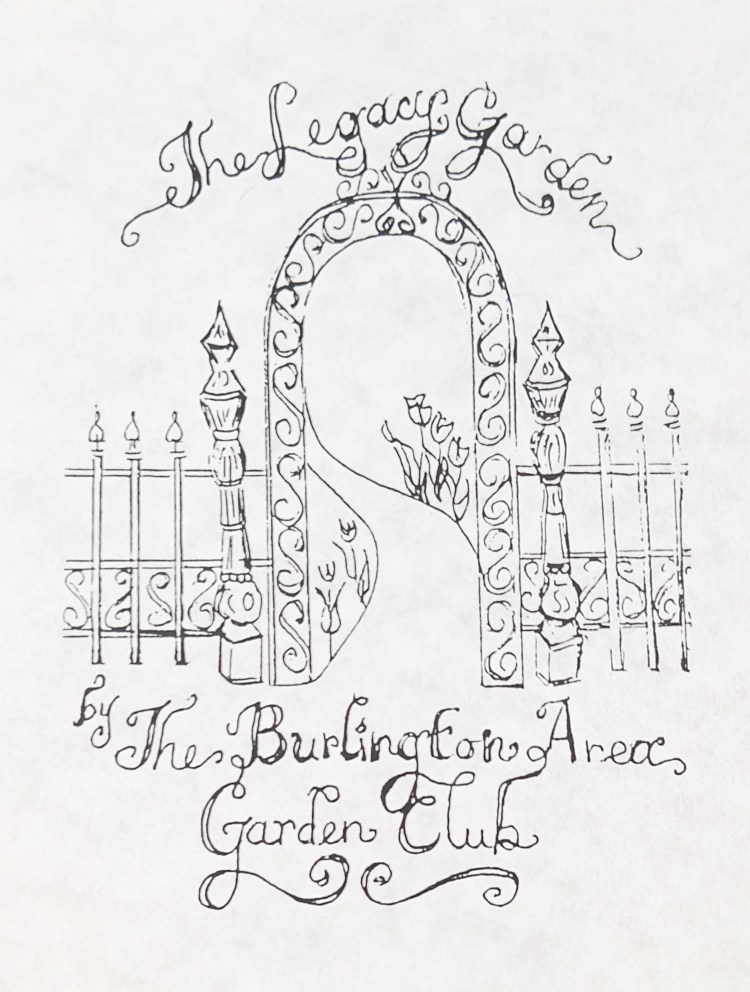 The Legacy Garden
by The Burlington Area
Garden Club